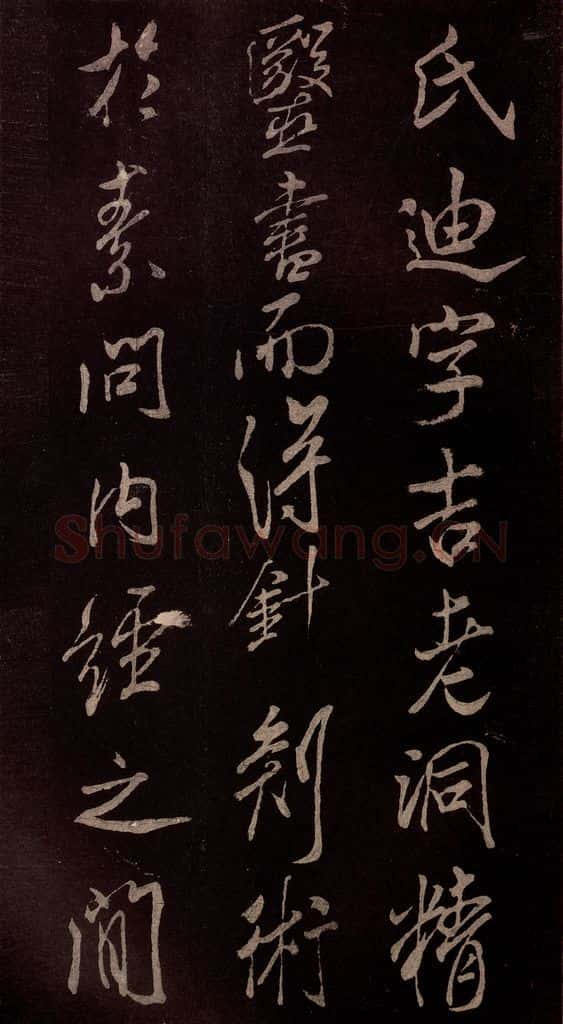 氏迪字吉老洞精
毉書而得針刺術
於素問內經之間
Shufawang.CN